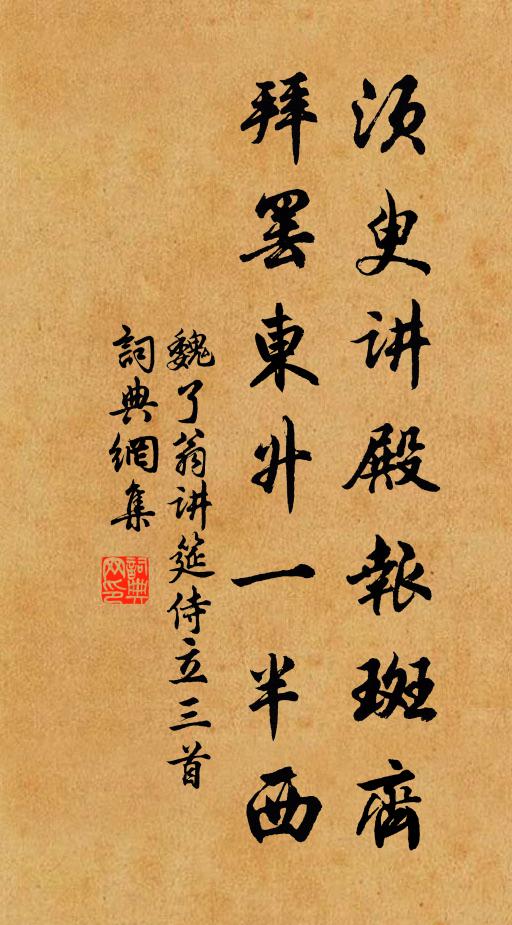 须叟讲殿報斑齊
拜罢東升一半西
魏了翁讲筵侍立三首
詞典網集
詞典网印